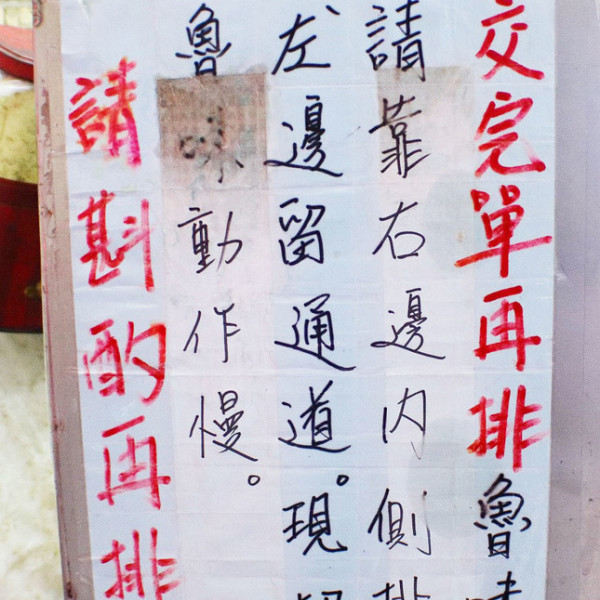 交完單再排魯味
請靠右邊內側排
左邊留通道。現
魯味動作慢。
請斟酌再排